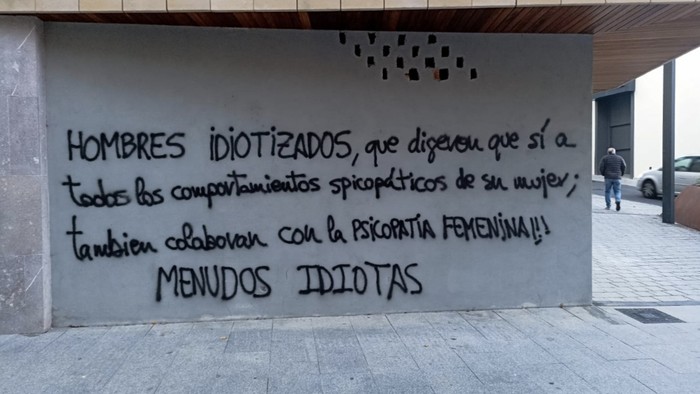 HOMBRES IDIOTIZADOS, que digeron que sí a
todos los comportamientos spicopáticos de su mujer;
tambien colaboran con la PSICOPATÍA FEMENINA!!!
MENUDOS IDIOTAS